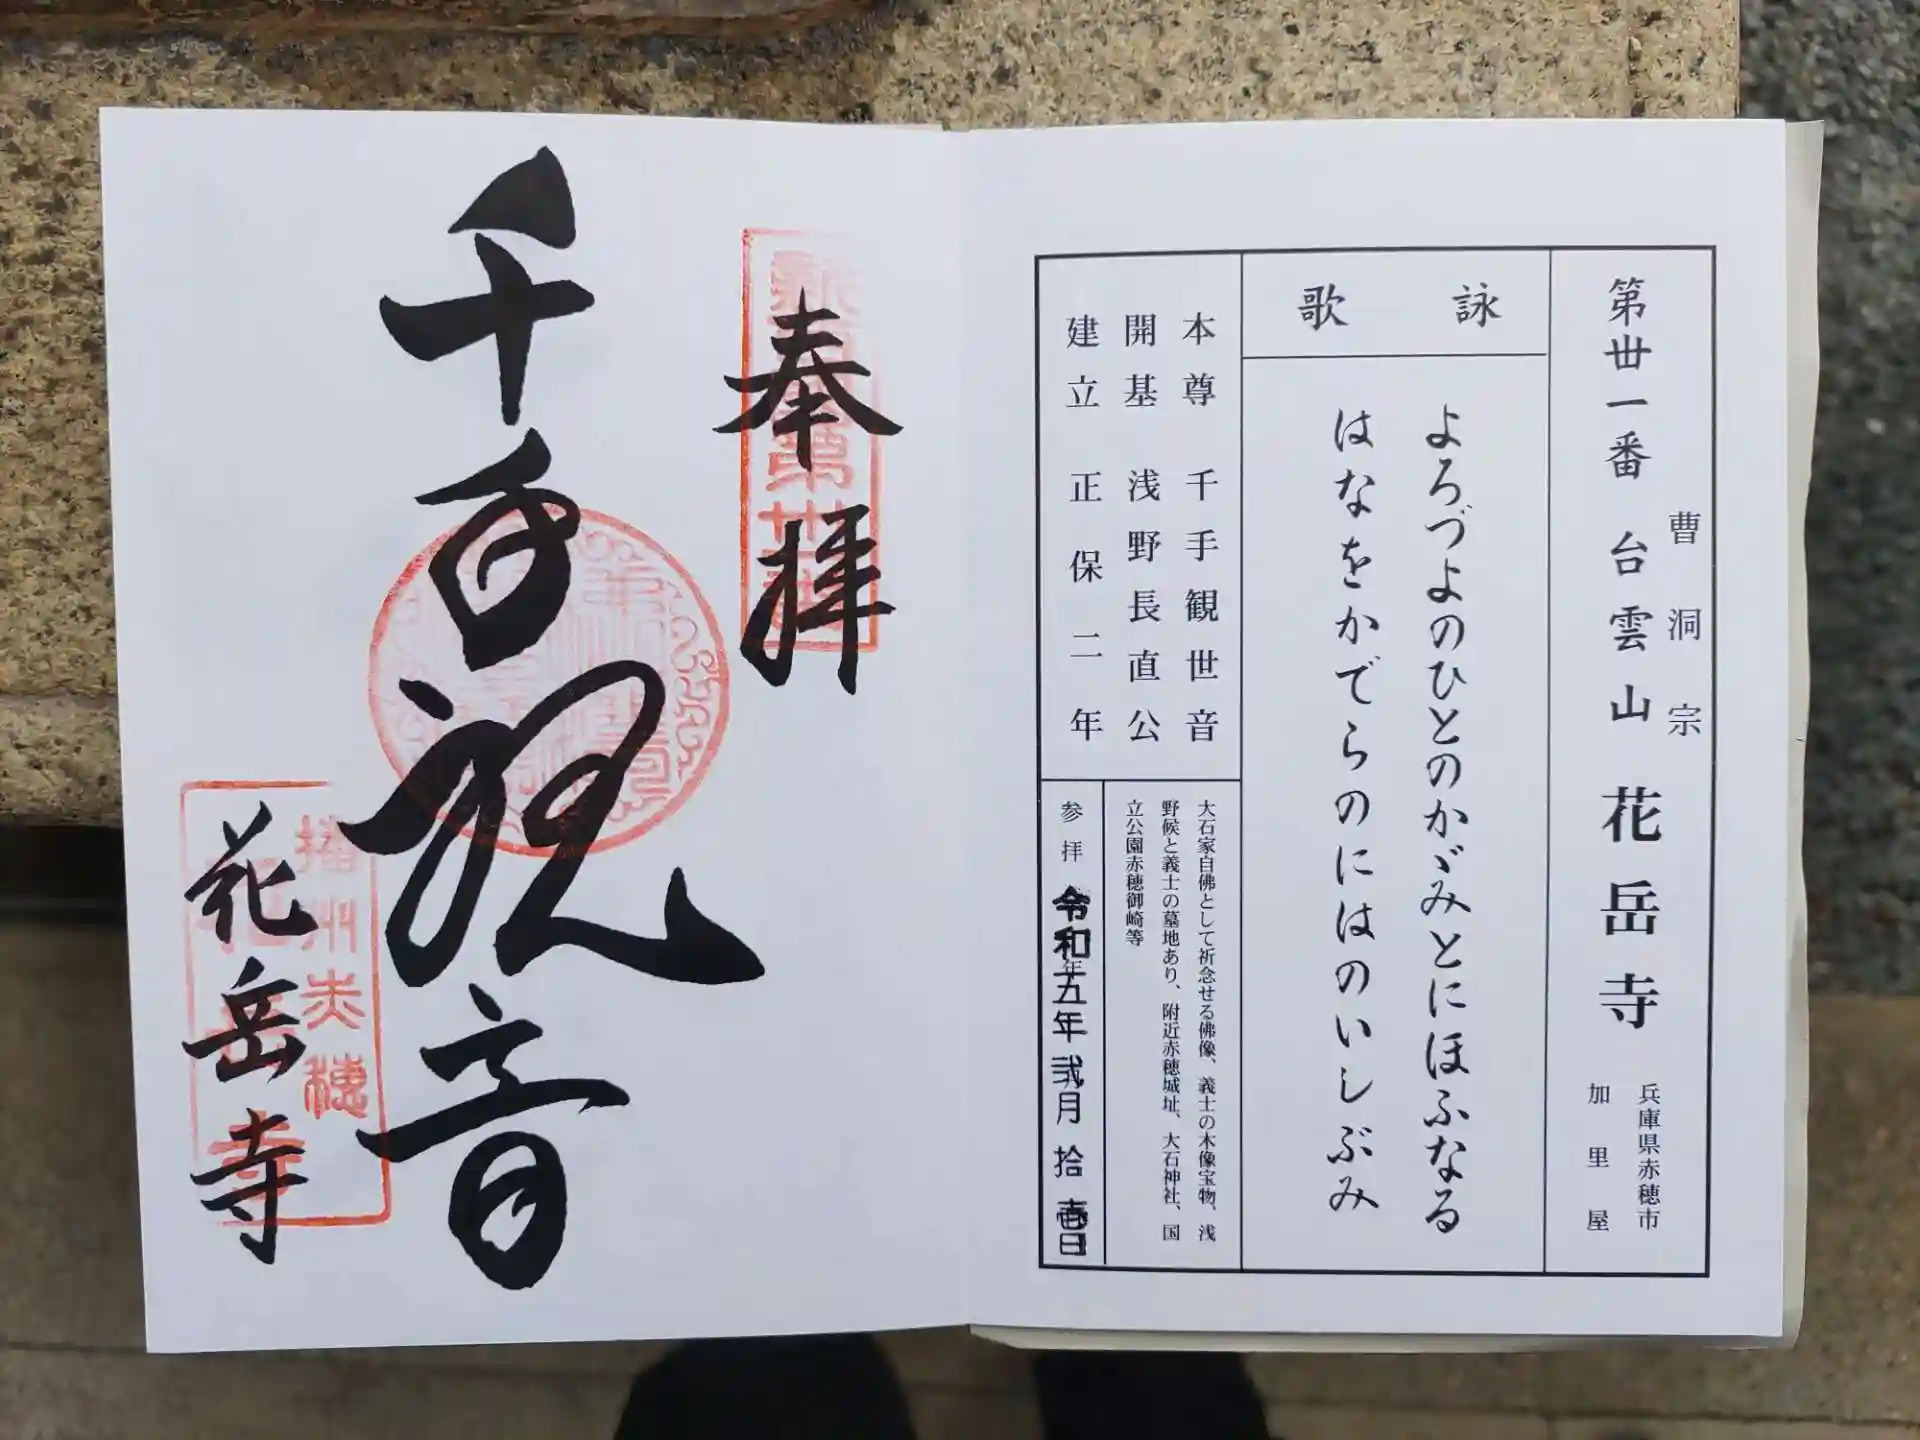 曹洞宗
第丗一番 台雲山 花岳寺
兵庫県赤穂市
加里屋
詠歌
よろづよのひとのかゞみとにほふなる
はなをかでらのにはのいしぶみ
本尊 千手観世音
開基 浅野長直公
建立 正保二年
大石家自佛として祈念せる佛像、義士の木像宝物、浅
野候と義士の墓地あり、附近赤穂城址、大石神社、国
立公園赤穂御崎等
参拝 令和五年弐月拾壱日
奉拝
千手観音
花岳寺
播州赤穂
花岳寺